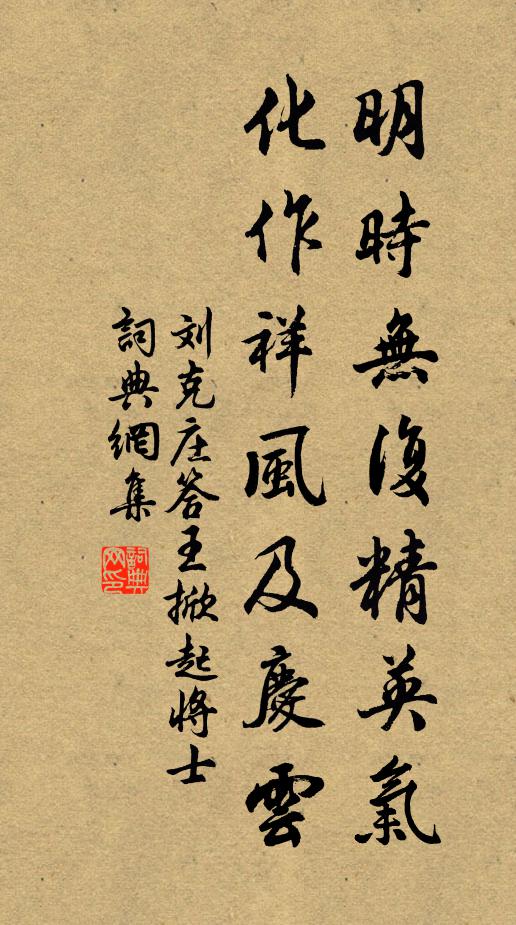 明時無復精英氣
化作祥風及慶雲
刘克庄答王掀起将士
詞典網集
詞典网印